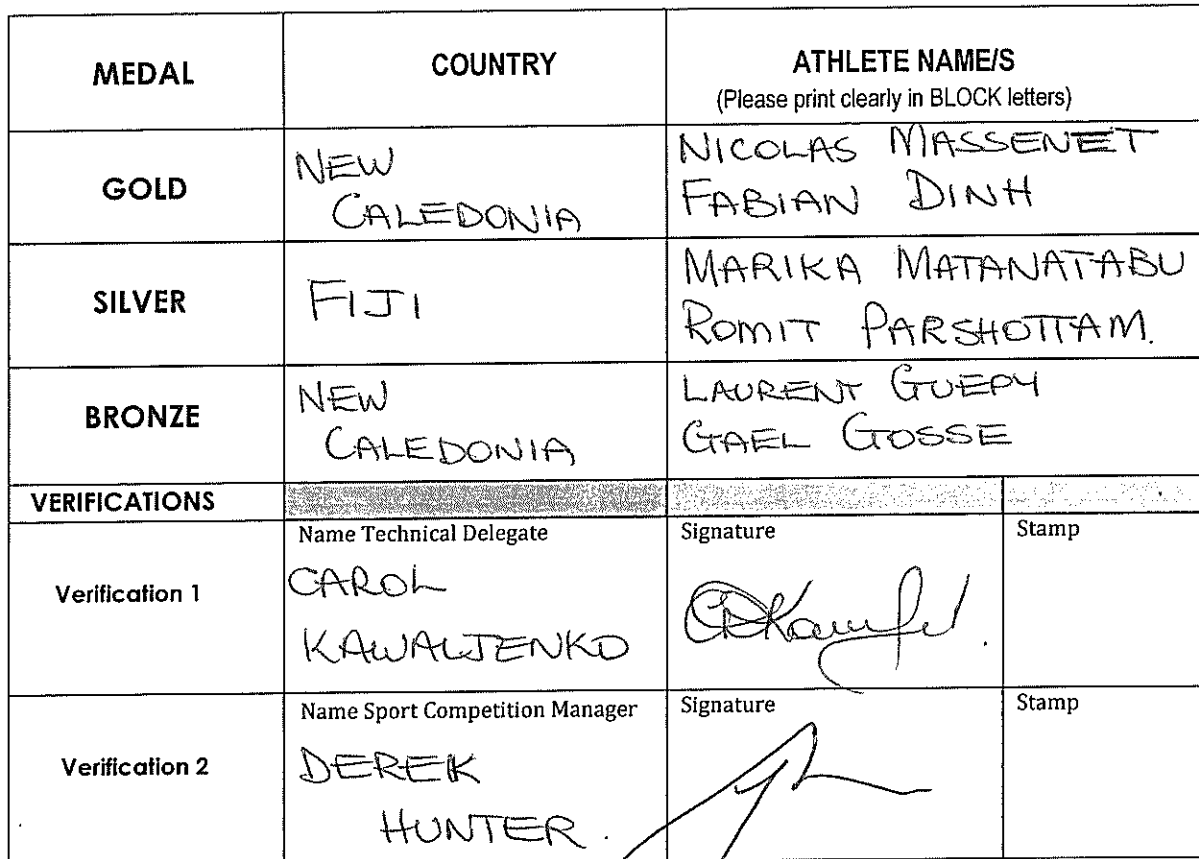 MEDAL
COUNTRY
ATHLETE NAME/S
(Please print clearly in BLOCK letters)
GOLD
NEW
CALEDONIA
NICOLAS MASSENET
FABIAN DINH
SILVER
FIJI
MARIKA MATANATABU
ROMIT PARSHOTTAM.
BRONZE
NEW
CALEDONIA
LAURENT GUEPY
GAEL GOSSE
VERIFICATIONS
Verification 1
Name Technical Delegate
CAROL
KAWALJENKO
Signature
Stamp
Verification 2
Name Sport Competition Manager
DEREK
HUNTER.
Signature
Stamp